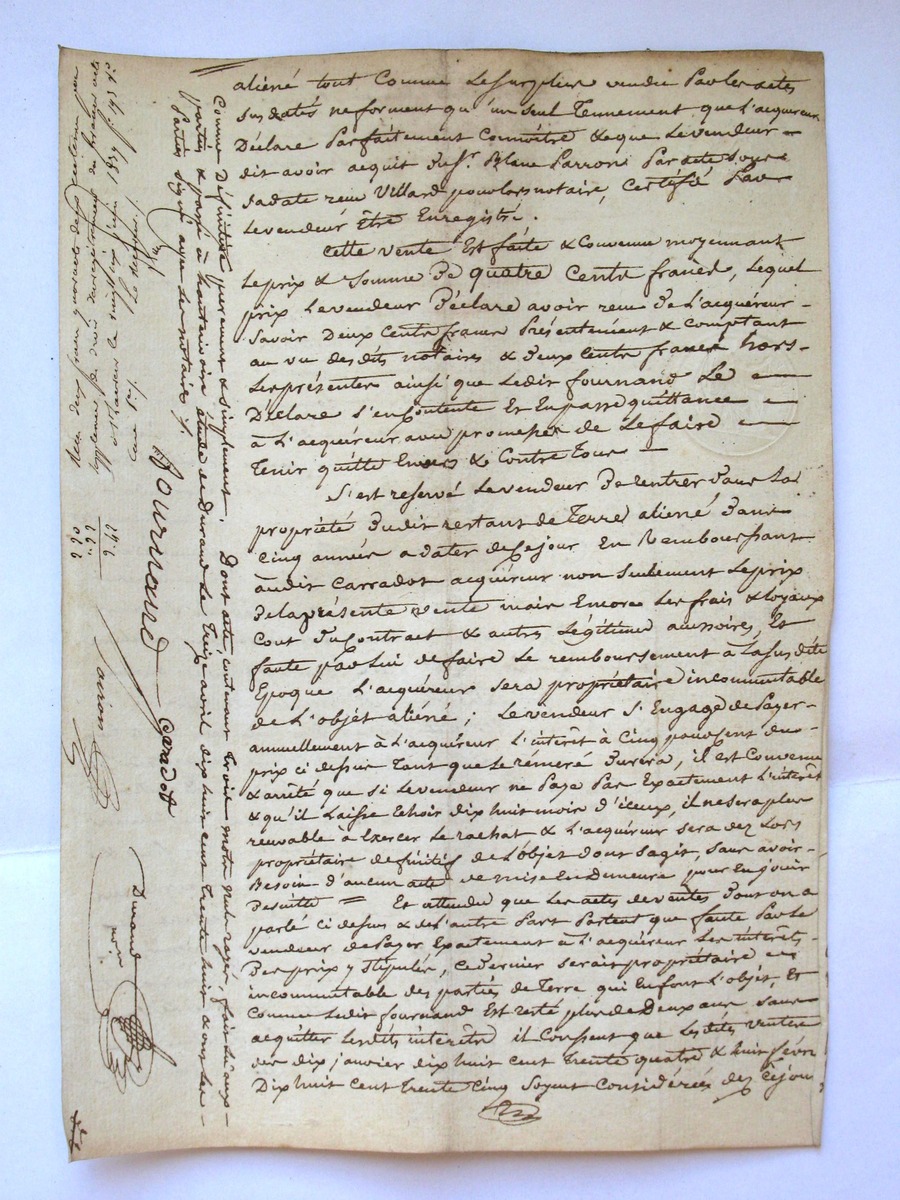 aliéné tout Comme Le surplus vendu Par les actes
sus datés ne forment qu'un seul Tennement que L'acquereur
Déclare Parfaitement Connoitre & que Le vendeur
dit avoir acquit du Sr. Parron Par acte sous
sa date reçu Villard notaire, Certifié Par
Le vendeur Être Enregistré.
Cette vente Est faite & Convenue moyennant
Le prix & Somme De quatre Cents francs, Lequel
prix Le vendeur Déclare avoir reçu De L'acquéreur
Savoir Deux Cents francs Présentement & Comptant
au vu des dits notaires & Deux Cents francs hors
Les présentes ainsi que Ledit fournand Le
Déclare s'en Contente Et En passe quittance
à L'acquéreur avec promesse de Le faire
Tenir quitte Envers & Contre Tous
S'est reservé Le vendeur De rentrer Dans La
propriété Dudit restant de Terre aliéné Dans
Cinq années a dater de Ce jour En Remboursant
audit Carradot acquéreur non seulement Le prix
De la présente vente mais Encore Les frais & Loyaux
Cout Du Contract & autres Légitimes accessoires, Et
faute Par Lui de faire Le remboursement à La susdite
Epoque L'acquéreur sera propriétaire incommutable
de L'objet aliéné; Le vendeur S'Engage de Payer
annuellement à L'acquéreur L'interêt à Cinq pour Cent du
prix ci dessus Tant que Le réméré Durera, il est Convenu
& arrêté que si Le vendeur ne Paye Pas Exactement L'interêt
& qu'il Laisse Echoir dix huit mois d'iceux, il ne sera plus
recevable à Exercer Le rachat & L'acquéreur sera dez Lors
propriétaire définitif de L'objet dont s'agit, sans avoir
Besoin d'aucun acte de mise En Demeure pour En jouir
De suitte = Et attendu que Les actes de ventes Dont on a
parlé ci dessus & de L'autre Part Portent que faute Par Le
vendeur de Payer Exactement à L'acquéreur Les interêts
Des prix y Stipulés, ce dernier serait propriétaire
incommutable des parties de Terre qui En font L'objet, Et
Comme Ledit fournand Est resté plus de Deux ans sans
acquitter Lesdits interêts il Consent que Les dites ventes
des dix janvier dix huit cent Trente quatre & huit fevr
Dix huit cent Trente Cinq Soyent Considérées dez Ce jour
Comme Définitives purement & simplement. Dont acte, contenant trois mots nuls rayés, fait Lu aux
parties & passé à hauterives étude de Durand Le Treize avril dix huit cent Trente huit & ont Les
Parties signé avec Les notaires
fournand
Caradot
Durand
nore